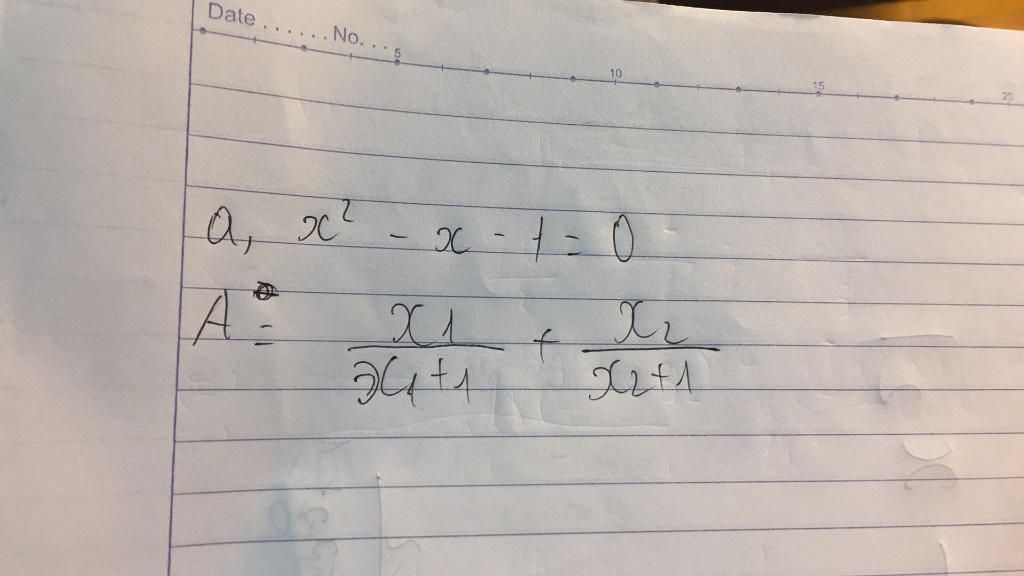 Date ...... No....
5 10 15 20
a, x² - x - 1 = 0
A = x1/(x1+1) + x2/(x2+1)